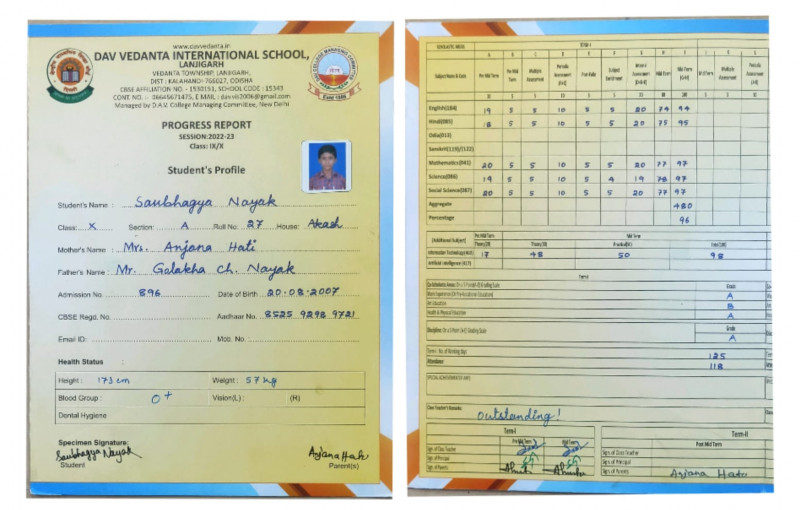 www.davvedanta.in
DAV VEDANTA INTERNATIONAL SCHOOL,
LANJIGARH
VEDANTA TOWNSHIP, LANJIGARH,
DIST : KALAHANDI-766027, ODISHA
CBSE AFFILIATION NO. - 1530151, SCHOOL CODE : 15343
CONT. NO. - 06645671475, E MAIL : davvis2006@gmail.com
Managed by D.A.V. College Managing Committee, New Delhi
PROGRESS REPORT
SESSION:2022-23
Class: IX/X
Student's Profile
Student's Name : Saubhagya Nayak
Class: X Section: A Roll No. 27 House: Akash
Mother's Name : Mrs. Anjana Hati
Father's Name : Mr. Golakha Ch. Nayak
Admission No. 896 Date of Birth 20-08-2007
CBSE Regd. No. Aadhaar No. 8525 9298 9721
Email ID: Mob. No.
Health Status :
Height : 173 cm Weight : 57 kg
Blood Group : O+ Vision(L) : (R)
Dental Hygiene
Specimen Signature:
Saubhagya Nayak Anjana Hati
Student Parent(s)
SCHOLASTIC AREAS TERM-I
A B C D E F G H I J K
Subject Name & Code Pre Mid Term Multiple Assessment Periodic Assessment Subject Enrichment Mid Term
English(184) 19 5 5 10 5 5 20 74 94
Hindi(085) 18 5 5 10 5 5 20 75 95
Odia(113)
Sanskrit(119)/(122)
Mathematics(041) 20 5 5 10 5 5 20 77 97
Science(086) 19 5 5 10 5 4 19 78 97
Social Science(087) 20 5 5 10 5 5 20 77 97
Aggregate 480
Percentage 96
(Additional Subject) Pre Mid Term Mid Term
Information Technology(402) 17 48 50 98
Artificial Intelligence (417)
Term I
Grade
A
Art Education B
Health & Physical Education A
Grade
A
125
Attendance 118
Class Teacher's Remarks Outstanding!
Term-I Term-II
Pre Mid Term Mid Term Post Mid Term
Sign. of Class Teacher Sign. of Class Teacher
Sign. of Principal Sign. of Principal
Sign. of Parents Sign. of Parents Anjana Hati